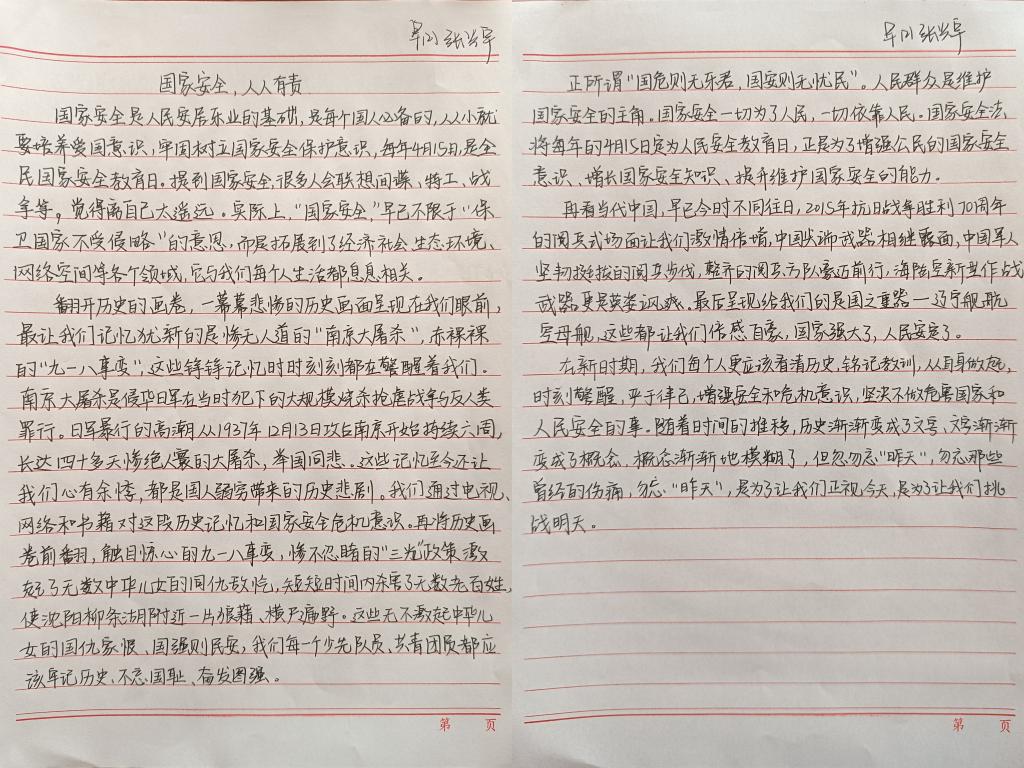 张
国家安全,人人有责
国家安全是人民安居乐业的基础,是每个国人必备的,从小就
要培养爱国意识,牢固树立国家安全保护意识,每年4月15日,是全
民国家安全教育日。提到国家安全,很多人会联想间谍、特工、战
争等,觉得离自己太遥远。实际上,“国家安全”早已不限于“保
卫国家不受侵略”的意思,而是拓展到了经济社会、生态环境、
网络空间等各个领域,它与我们每个人生活都息息相关。
翻开历史的画卷,一幕幕悲惨的历史画面呈现在我们眼前,
最让我们记忆犹新的是惨无人道的“南京大屠杀”,赤裸裸
的“九一八事变”,这些铮铮记忆时时刻刻都在警醒着我们.
南京大屠杀是侵华日军在当时犯下的大规模烧杀抢虐战争与反人类
罪行。日军暴行的高潮从1937年12月13日攻占南京开始持续六周,
长达四十多天惨绝人寰的大屠杀,举国同悲。这些记忆至今还让
我们心有余悸,都是国人弱穷带来的历史悲剧。我们通过电视、
网络和书籍对这段历史记忆和国家安全危机意识。再将历史画
卷前翻,触目惊心的九一八事变,惨不忍睹的“三光”政策激
起了无数中华儿女的同仇敌忾,短短时间内杀害了无数老百姓,
使沈阳柳条湖附近一片狼藉、横尸遍野。这些无不激起中华儿
女的国仇家恨、国强则民安,我们每一个少先队员、共青团员都应
该牢记历史、不忘国耻、奋发图强。
第 页
张
正所谓“国危则无乐君,国安则无忧民”。人民群众是维护
国家安全的主角。国家安全一切为了人民,一切依靠人民。国家安全法
将每年的4月15日定为人民安全教育日,正是为了增强公民的国家安全
意识、增长国家安全知识、提升维护国家安全的能力。
再看当代中国,早已今时不同往日,2015年抗日战争胜利70周年
的阅兵式场面让我们激情倍增,中国尖端武器相继露面,中国军人
坚韧挺拔的阅兵步伐,整齐的阅兵方队豪迈前行,海陆空新型作战
武器更是英姿飒爽。最后呈现给我们的是国之重器—辽宁舰航
空母舰,这些都让我们倍感自豪,国家强大了,人民安定了。
在新时期,我们每个人更应该看清历史,铭记教训,从自身做起,
时刻警醒,严于律己,增强安全和危机意识,坚决不做危害国家和
人民安全的事。随着时间的推移,历史渐渐变成了文字、文字渐渐
变成了概念,概念渐渐地模糊了,但勿忽忘“昨天”,勿忘那些
曾经的伤痛,勿忘“昨天”,是为了让我们正视今天,是为了让我们挑
战明天。
第 页